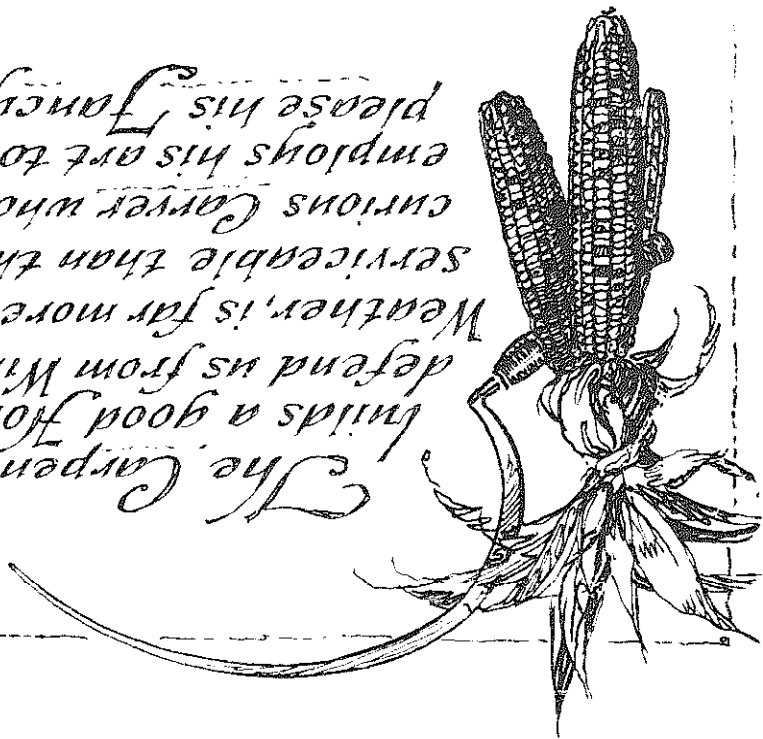 The Carpen
builds a good Ho
defend us from Wi
Weather, is far more
serviceable than th
curious Carver who
employs his art to
please his Fancy